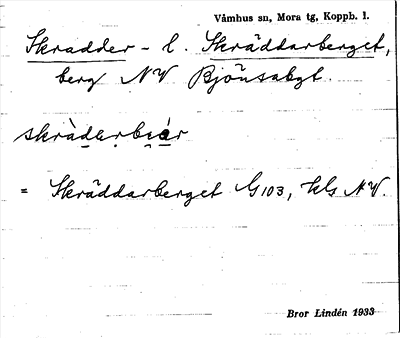 Våmhus sn, Mora tg, Koppb. l.
Skradder- l. Skräddarberget,
berg NV Björsabgt.
skràdarbiár
= Skräddarberget G103, kls NV.
Bror Lindén 1933